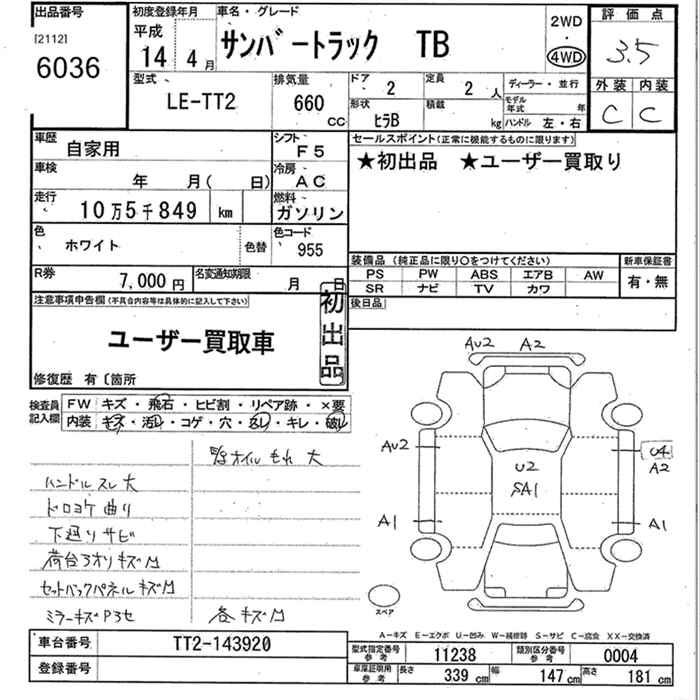 出品番号
[2112]
6036
初度登録年月
平成
14年 4月
車名・グレード
サンバートラック TB
2WD
・
4WD
評価点
3.5
外装 内装
C C
型式
LE-TT2
排気量
660 CC
ドア 2
定員 2人
ディーラー・並行
形状 ヒラB
積載 kg
モデル年式 年
ハンドル 左・右
車歴 自家用
シフト F5
セールスポイント(正常に機能するものに限ります)
★初出品 ★ユーザー買取り
車検 年 月( 日)
冷房 AC
走行 10万5千849 km
燃料 ガソリン
色 ホワイト 色替
色コード 955
装備品 (純正品に限り〇をつけてください)
新車保証書
PS PW ABS エアB AW
有・無
SR ナビ TV カワ
R券 7,000円
名変通知期限 月 日
後日品
注意事項申告欄(不具合内容等は具体的に記入して下さい)
初出品
ユーザー買取車
修復歴 有〔箇所
検査員記入欄
FW キズ・飛石・ヒビ割・リペア跡・×要
内装 キズ・汚レ・コゲ・穴・スレ・キレ・破レ
AU2 A2
AU2
U4
A2
U2
SA1
A1
A1
スペア
オイルもれ 大
ハンドルスレ大
ドロヨケ曲り
下廻りサビ
荷台アオリキズ凹
セットバックパネルキズ凹
ミラーキズ
各キズ凹
A-キズ E-エクボ U-凹み W-補修跡 S-サビ C-腐食 XX-交換済
車台番号 TT2-143920
登録番号
型式指定番号参考 11238
類別区分番号参考 0004
車庫証明用参考 長さ 339 cm 幅 147 cm 高さ 181 cm